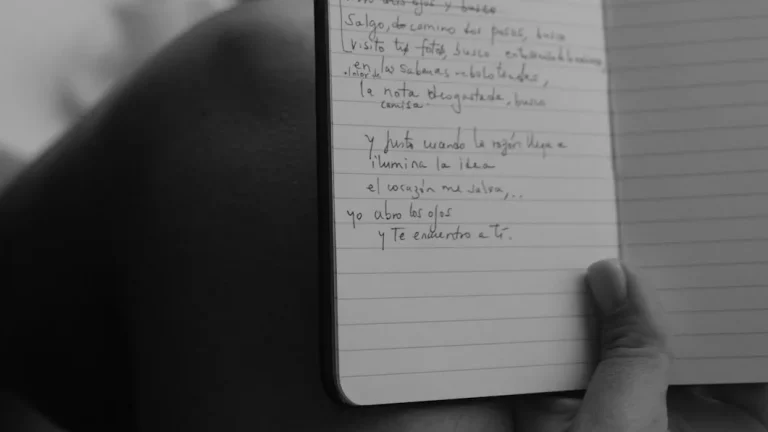 mis ojos y busco
Salgo, de camino dos pasos, busco
visito tus fotos, busco
en las sabanas
la nota desgastada, busco
camisa
y justo cuando la razón llega e
ilumina la idea
el corazón me salva,..
yo abro los ojos
y Te encuentro a ti.